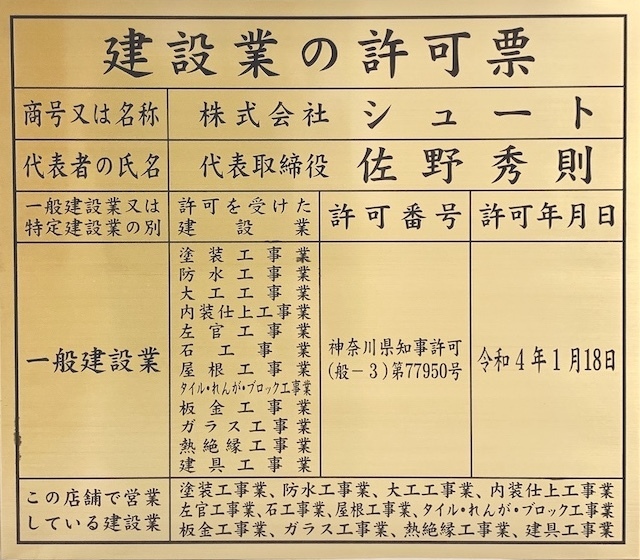 建設業の許可票
商号又は名称
株式会社 シュート
代表者の氏名
代表取締役 佐野秀則
一般建設業又は
特定建設業の別
許可を受けた
建設業
許可番号
許可年月日
一般建設業
塗装工事業
防水工事業
大工工事業
内装仕上工事業
左官工事業
石工事業
屋根工事業
タイル・れんが・ブロック工事業
板金工事業
ガラス工事業
熱絶縁工事業
建具工事業
神奈川県知事許可
(般-3)第77950号
令和4年1月18日
この店舗で営業
している建設業
塗装工事業、防水工事業、大工工事業、内装仕上工事業
左官工事業、石工事業、屋根工事業、タイル・れんが・ブロック工事業
板金工事業、ガラス工事業、熱絶縁工事業、建具工事業